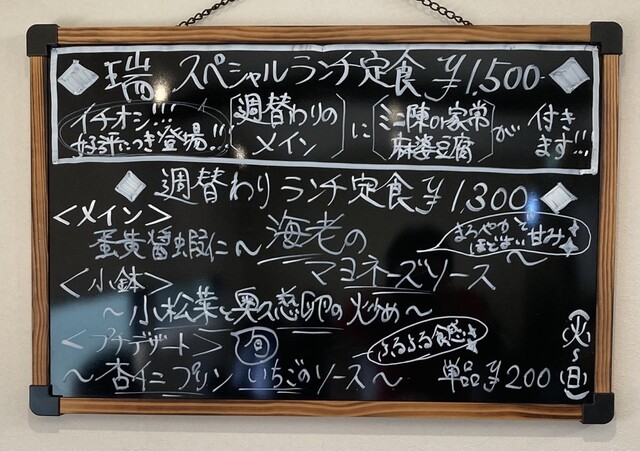 瑞 スペシャルランチ定食 ¥1,500
イチオシ!!!
好評につき登場!!!
週替わりの
メイン
に
ミニ陳or家常
麻婆豆腐
が
付き
ます!!!
週替わりランチ定食 ¥1,300
<メイン>
蛋黄醤蝦仁〜海老の
マヨネーズソース〜
まろやかで
ほどよい甘み
<小鉢>
〜小松菜と奥久慈卵の炒め〜
<プチデザート> 旬
ぷるぷる食感
〜杏仁プリン いちごのソース〜 単品¥200
(火〜日)